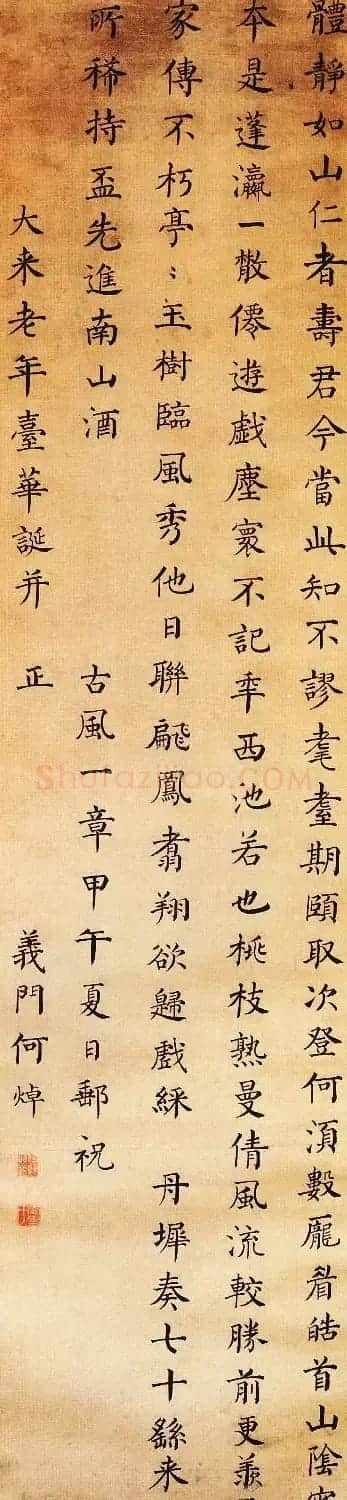 體靜如山仁者壽君今當此知不謬耄耋期頤取次登何須數龐眉皓首山陰
本是蓬瀛一散僊遊戲塵寰不記年西池若也桃枝熟曼倩風流較勝前更羨
家傳不朽亭〻玉樹臨風秀他日聯翩鳳翥翔欲歸戲綵 丹墀奏七十繇来
所稀持盃先進南山酒 古風一章甲午夏日郵祝
大来老年臺華誕并 正 義門何焯
Shufazidao.COM